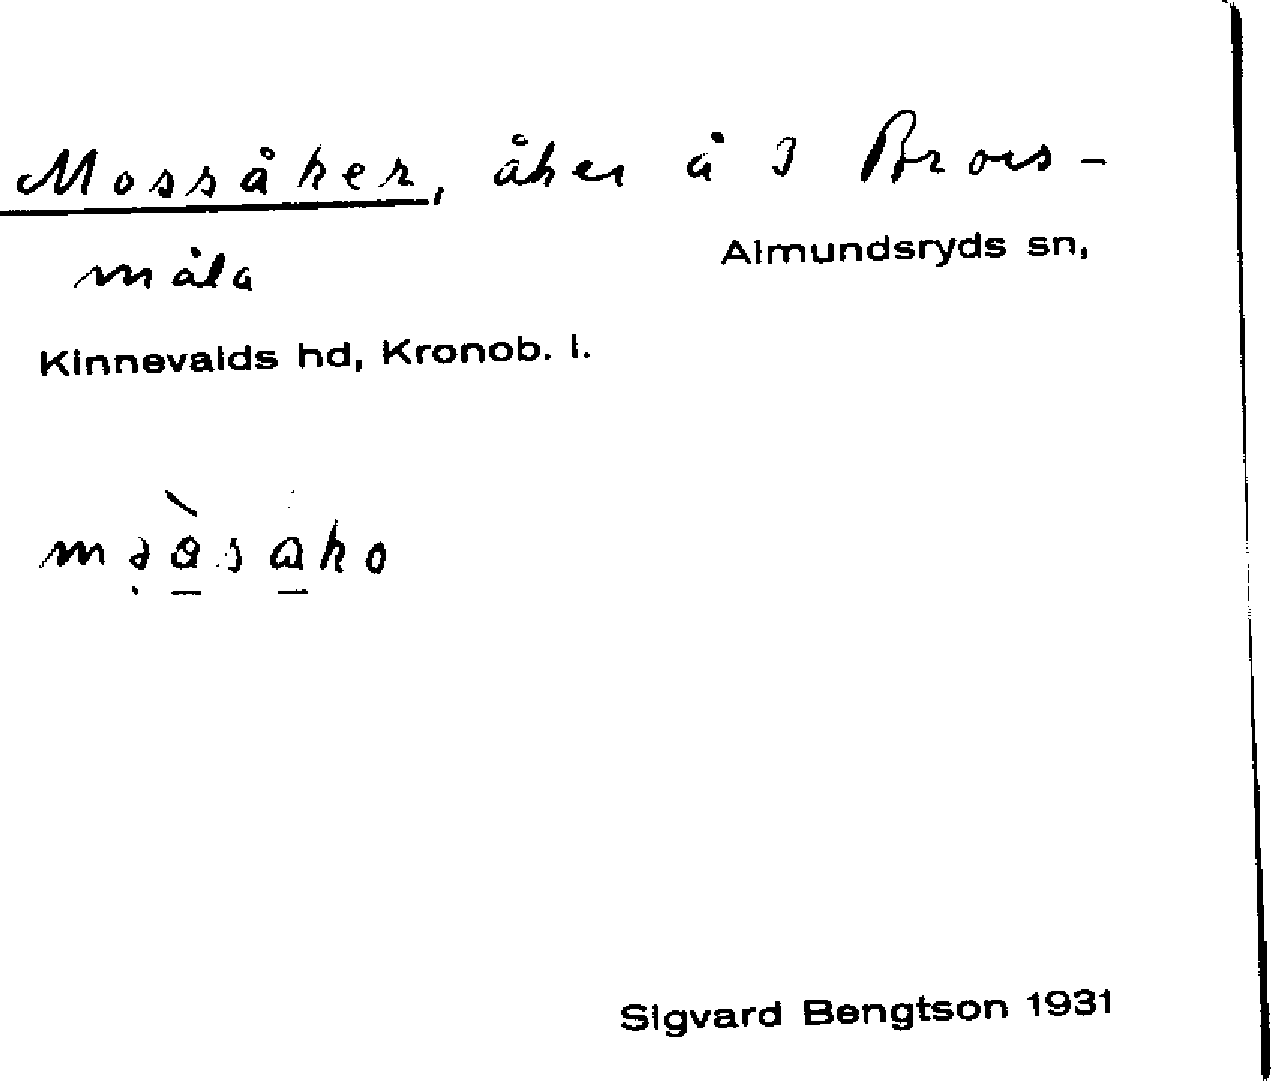 Mossåker, åker å 3 Brors-
måla
Almundsryds sn,
Kinnevalds hd, Kronob. l.
Sigvard Bengtson 1931